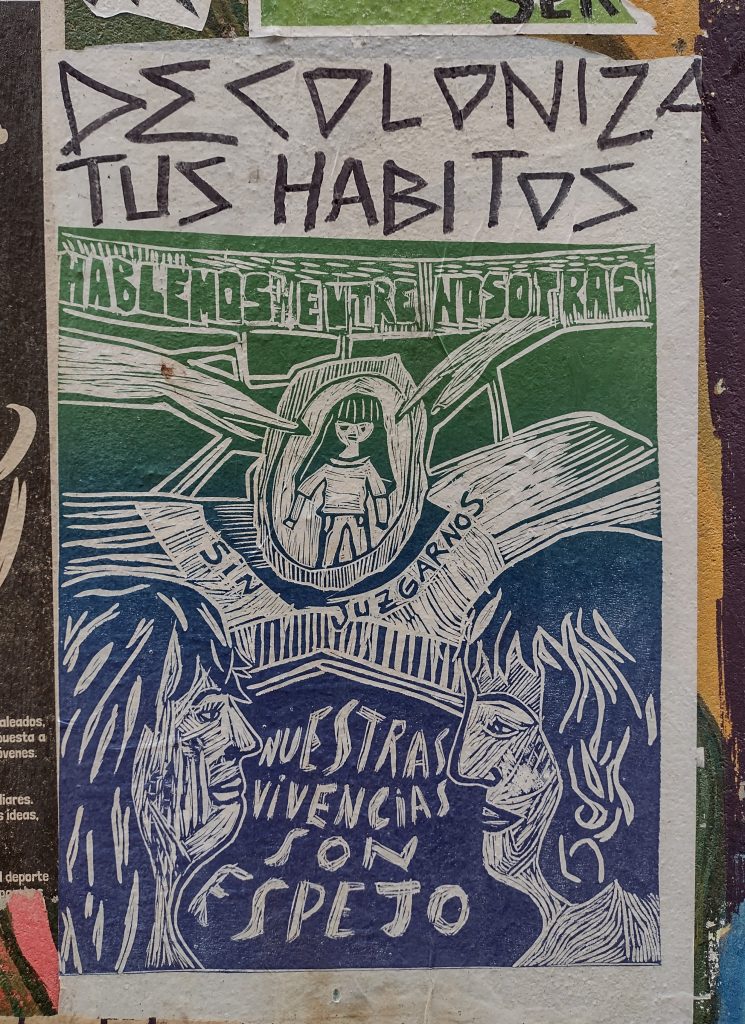 SER
DECOLONIZA
TUS HABITOS
HABLEMOS ENTRE NOSOTRAS
SIN JUZGARNOS
NUESTRAS
VIVENCIAS
SON
ESPEJO
aleados,
puesta a
óvenes.
liares.
s ideas,
l deporte